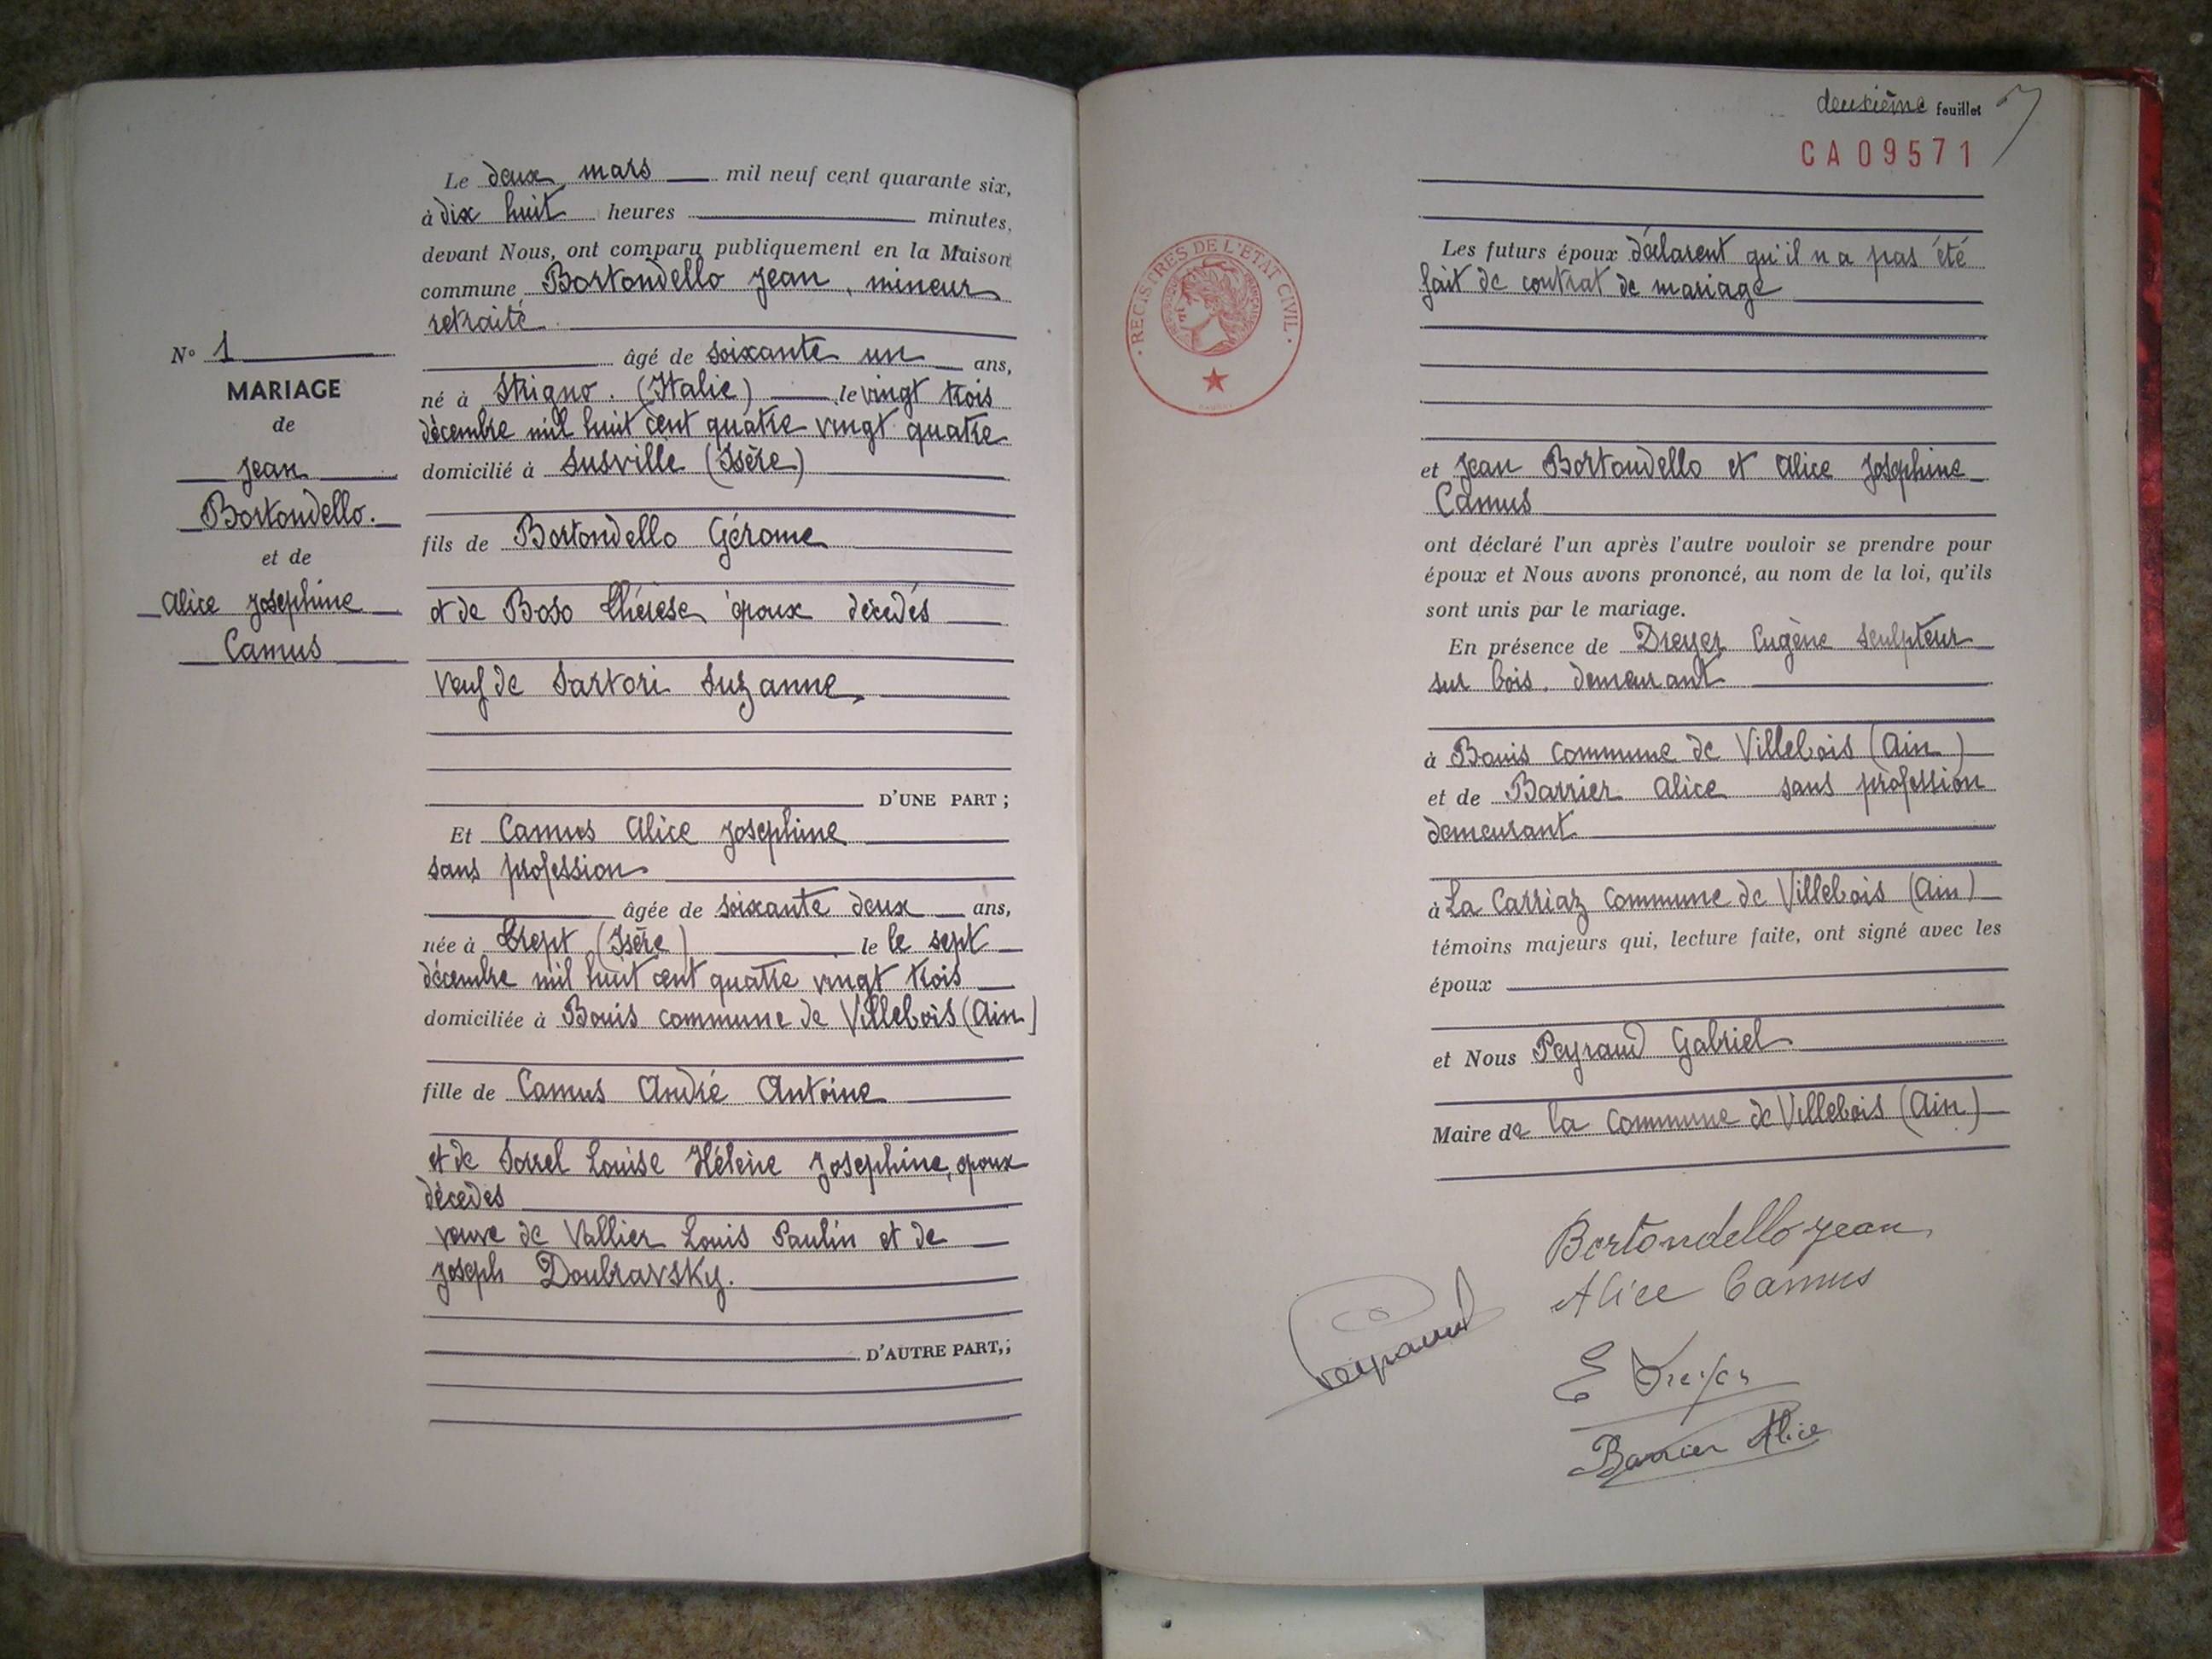 N° 1
MARIAGE
de
Jean
Bortondello.
et de
Alice Josephine
Camus
Le deux mars mil neuf cent quarante six,
à dix huit heures minutes,
devant Nous, ont comparu publiquement en la Maison
commune Bortondello Jean, mineur
retraité
âgé de soixante un ans,
né à Strigno. (Italie) le vingt trois
décembre mil huit cent quatre vingt quatre
domicilié à Susville (Isère)
fils de Bortondello Gérome
et de Boso Thérèse époux décedés
Veuf de Sartori Suzanne,
D'UNE PART ;
Et Camus Alice Josephine
sans profession
âgée de soixante deux ans,
née à Trept (Isère) le le sept
décembre mil huit cent quatre vingt trois
domiciliée à Bouis commune de Villebois (Ain)
fille de Camus André Antoine
et de Sorrel Louise Hélène Josephine, époux
décedés
veuve de Vallier Louis Paulin et de
Joseph Doubravsky.
D'AUTRE PART,;
deuxième feuillet
CA09571
REGISTRES DE L'ETAT CIVIL
Les futurs époux déclarent qu'il n a pas été
fait de contrat de mariage
et Jean Bortondello et Alice Josephine
Camus
ont déclaré l'un après l'autre vouloir se prendre pour
époux et Nous avons prononcé, au nom de la loi, qu'ils
sont unis par le mariage.
En présence de Dreyer Eugène sculpteur
sur bois. demeurant
à Bouis commune de Villebois (Ain)
et de Barrier Alice sans profession
demeurant
à La Carriaz commune de Villebois (Ain)
témoins majeurs qui, lecture faite, ont signé avec les
époux
et Nous Peyraud Gabriel
Maire de la commune de Villebois (Ain)
Bortondello Jean
Alice Camus
Peyraud
E Dreyer
Barrier Alice